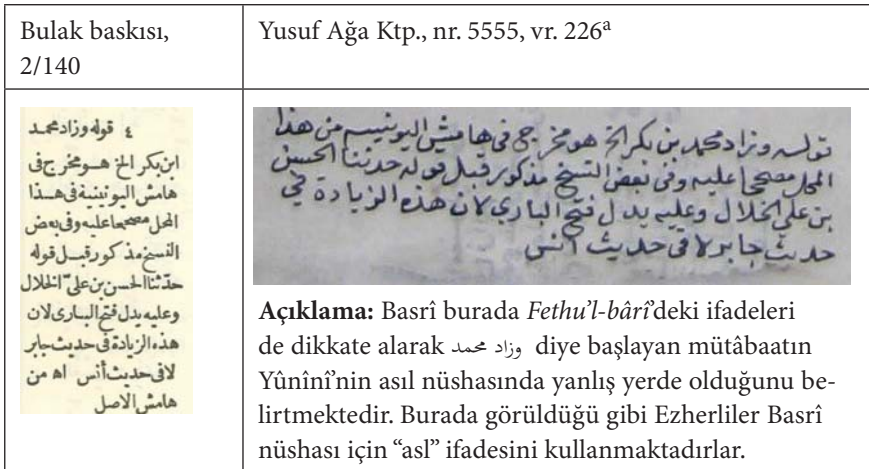 Bulak baskısı,
2/140
Yusuf Ağa Ktp., nr. 5555, vr. 226ᵃ
٤ قوله وزاد محمد
ابن بكر الخ هــو مخرج فى
هامش اليونينية فى هــذا
المحل مصححا عليه وفى بعض
النسخ مذكور قبــل قوله
حدّثنا الحسن بن علىّ الخلال
وعليه يدل فتح البــارى لان
هذه الزيادة فى حديث جابر
لا فى حديث أنس اه من
هامش الاصل
قولــه وزاد محمد بن بكر الخ هو مخرج فى هامش اليونينيــه من هذا
المحل مصححا عليه وفى بعض النسخ مذكور قبل قوله حدثنا الحسن
بن علي الخلال وعليه يدل فتح الباري لان هذه الزيادة في
حديث جابر لا فى حديث انس
Açıklama: Basrî burada Fethu’l-bârî’deki ifadeleri
de dikkate alarak وزاد محمد diye başlayan mütâbaatın
Yûnînî’nin asıl nüshasında yanlış yerde olduğunu be-
lirtmektedir. Burada görüldüğü gibi Ezherliler Basrî
nüshası için “asl” ifadesini kullanmaktadırlar.